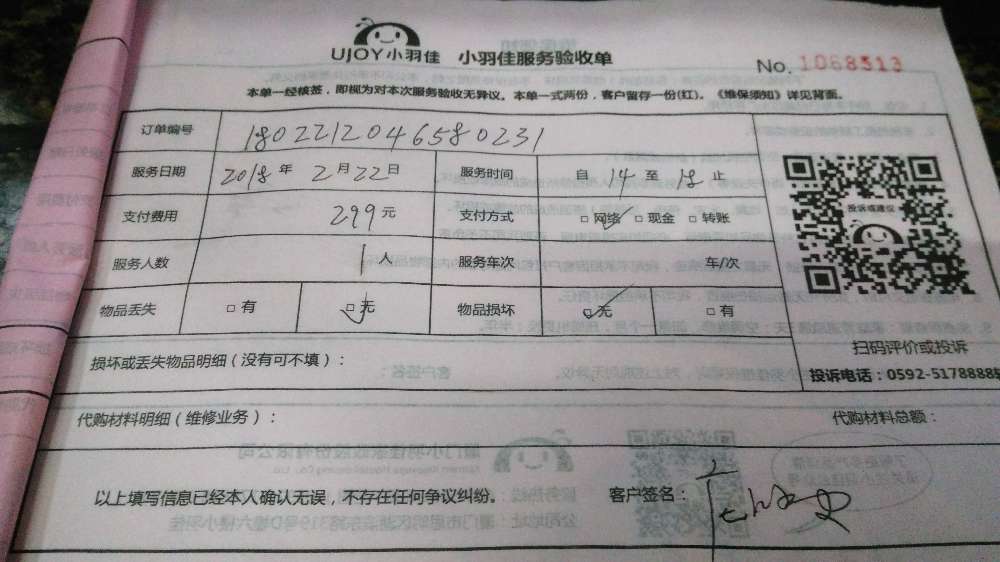 UJOY小羽佳 小羽佳服务验收单
No. 1068513
本单一经核签，即视为对本次服务验收无异议。本单一式两份，客户留存一份(红)。《维保须知》详见背面。
订单编号 180221204658 0231
服务日期 2018年 2月22日 服务时间 自 14 至 18 止
支付费用 299元 支付方式 □网络 □现金 □转账
服务人数 1人 服务车次 车/次
物品丢失 □有 □无 物品损坏 □无 □有
投诉或建议
扫码评价或投诉
投诉电话：0592-5178888
损坏或丢失物品明细（没有可不填）：
代购材料明细（维修业务）： 代购材料总额：
以上填写信息已经本人确认无误，不存在任何争议纠纷。 客户签名：